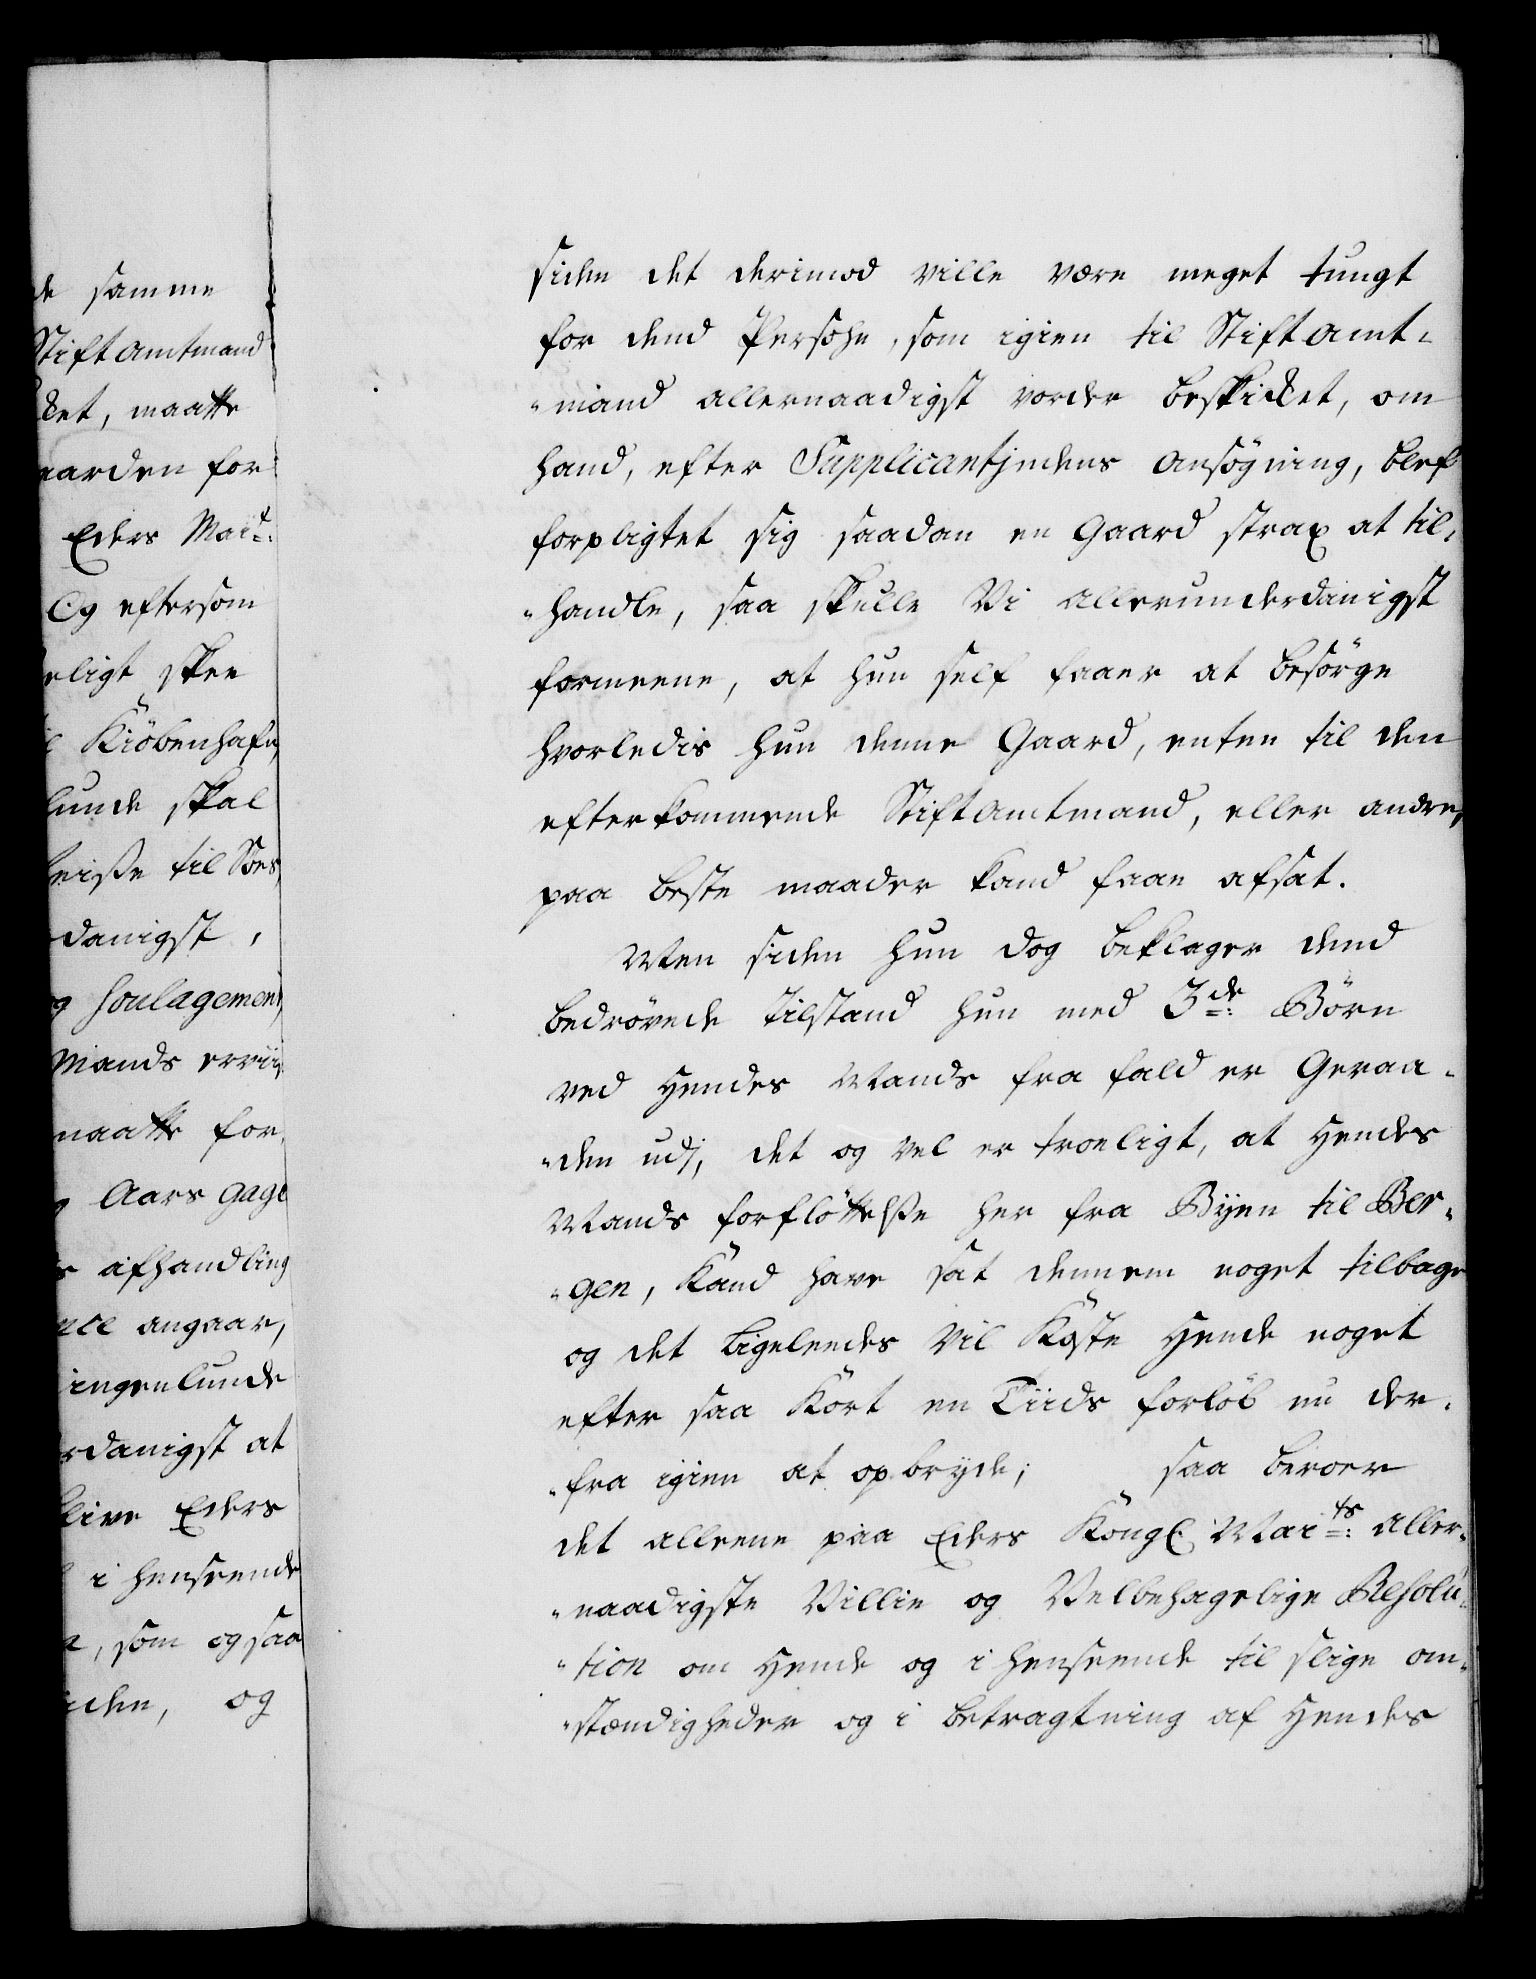 de samme
Stiftamtmand
ket, maatte
aarden for
Eders Mai:
Og eftersom
eligt skee
Kiöbenhafn,
lunde skal
reiße til Søes,
danigst,
soulagement,
Mands erviis
maatte for
Aars gage
afhandling
nce angaar,
ingenlunde
rdanigst at
blive Eders
i henseende
, som ogsaa
iden, og
siden det derimod ville være meget tungt
for dend Persohn, som igien til Stiftamt-
-mand allernaadigst vorder beskicket, om
hand, efter Supplicantindens ansögning, blef
forpligtet sig saadan en Gaard strax at til-
-handle, saa skulle Vi allerunderdanigst
formeene, at hun self faaer at besörge
hvorledis hun denne Gaard, enten til den
efterkommende Stiftamtmand, eller andre,
paa beste maader kand faae afsat.
Men siden hun dog beklager dend
bedrövede tilstand hun med 3de: Börn
ved Hendes Mands fra fald er Geraa-
-den udj, det og vel er troeligt, at Hendes
Mands forflöttelße her fra Byen til Ber-
-gen, Kand have sat dennem noget tilbage
og det Ligeleedes vil Köste Hende noget
efter saa Kort en Tiids forlöb nu der-
-fra igien at opbryde; saa beroer
det alleene paa Eders Kongl. Maits: aller-
-naadigste Villie og Velbehagelige Resolu-
-tion om Hende og i henseende til slige om-
-stændigheder og i betragtning af Hendes